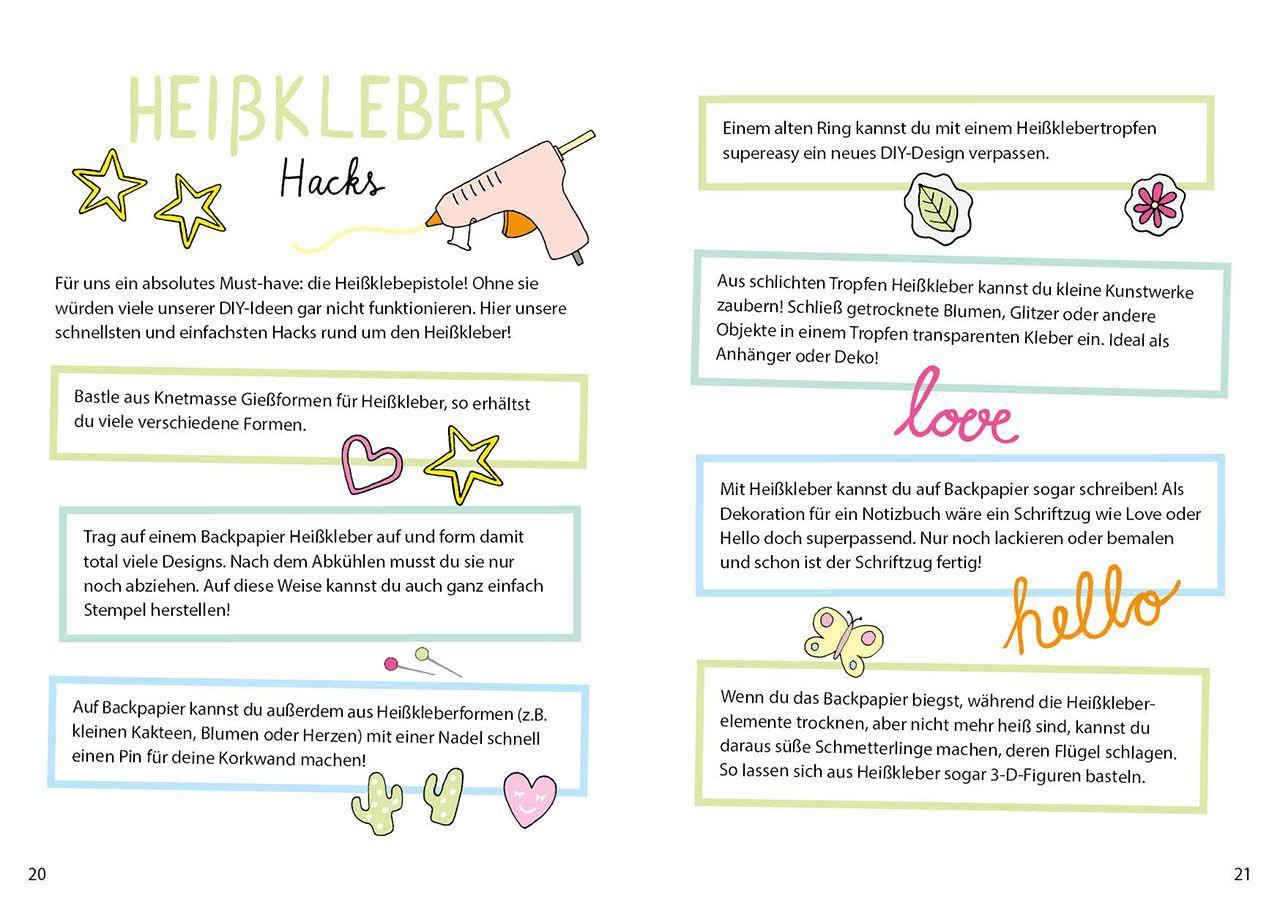 HEIßKLEBER
Hacks
Für uns ein absolutes Must-have: die Heißklebepistole! Ohne sie
würden viele unserer DIY-Ideen gar nicht funktionieren. Hier unsere
schnellsten und einfachsten Hacks rund um den Heißkleber!
Bastle aus Knetmasse Gießformen für Heißkleber, so erhältst
du viele verschiedene Formen.
Trag auf einem Backpapier Heißkleber auf und form damit
total viele Designs. Nach dem Abkühlen musst du sie nur
noch abziehen. Auf diese Weise kannst du auch ganz einfach
Stempel herstellen!
Auf Backpapier kannst du außerdem aus Heißkleberformen (z.B.
kleinen Kakteen, Blumen oder Herzen) mit einer Nadel schnell
einen Pin für deine Korkwand machen!
20
Einem alten Ring kannst du mit einem Heißklebertropfen
supereasy ein neues DIY-Design verpassen.
Aus schlichten Tropfen Heißkleber kannst du kleine Kunstwerke
zaubern! Schließ getrocknete Blumen, Glitzer oder andere
Objekte in einem Tropfen transparenten Kleber ein. Ideal als
Anhänger oder Deko!
love
Mit Heißkleber kannst du auf Backpapier sogar schreiben! Als
Dekoration für ein Notizbuch wäre ein Schriftzug wie Love oder
Hello doch superpassend. Nur noch lackieren oder bemalen
und schon ist der Schriftzug fertig!
hello
Wenn du das Backpapier biegst, während die Heißkleber-
elemente trocknen, aber nicht mehr heiß sind, kannst du
daraus süße Schmetterlinge machen, deren Flügel schlagen.
So lassen sich aus Heißkleber sogar 3-D-Figuren basteln.
21